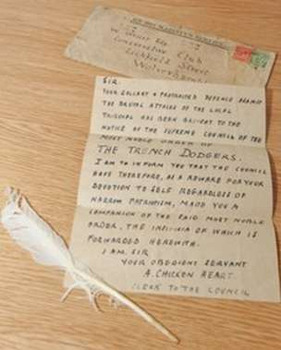 Conservative Club
Lichfield Street
SIR.
YOUR GALLANT & PROTRACTED DEFENCE AGAINST
THE BRUTAL ATTACKS OF THE LOCAL
TRIBUNAL HAS BEEN BROUGHT TO THE
NOTICE OF THE SUPREME COUNCIL OF THE
MOST NOBLE ORDER OF
THE TRENCH DODGERS.
I AM TO INFORM YOU THAT THE COUNCIL
HAVE THEREFORE, AS A REWARD FOR YOUR
DEVOTION TO SELF REGARDLESS OF
NARROW PATRIOTISM, MADE YOU A
COMPANION OF THE SAID MOST NOBLE
ORDER, THE INSIGNIA OF WHICH IS
FORWARDED HEREWITH.
I AM, SIR
YOUR OBEDIENT SERVANT
A. CHICKEN HEART.
CLERK TO THE COUNCIL